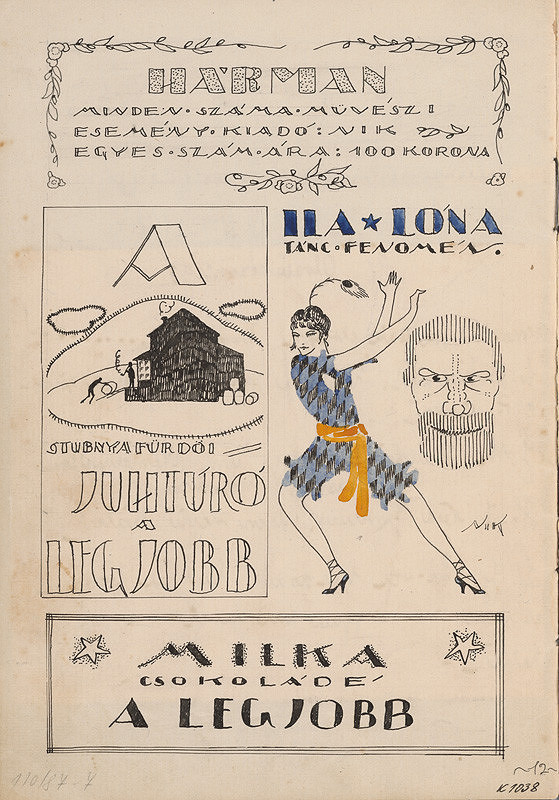 HÁRMAN
MINDEN·SZÁMA·MŰVÉSZI
ESEMÉNY·KIADÓ: NIK
EGYES·SZÁM·ÁRA: 100 KORONA
A
STUBNYAFÜRDŐI
JUHTÚRÓ
A
LEGJOBB
ILA★LÓNA
TÁNC·FENOMÉN.
NIK
MILKA
CSOKOLÁDÉ
A LEGJOBB
110/87-7
~12~
K 1038